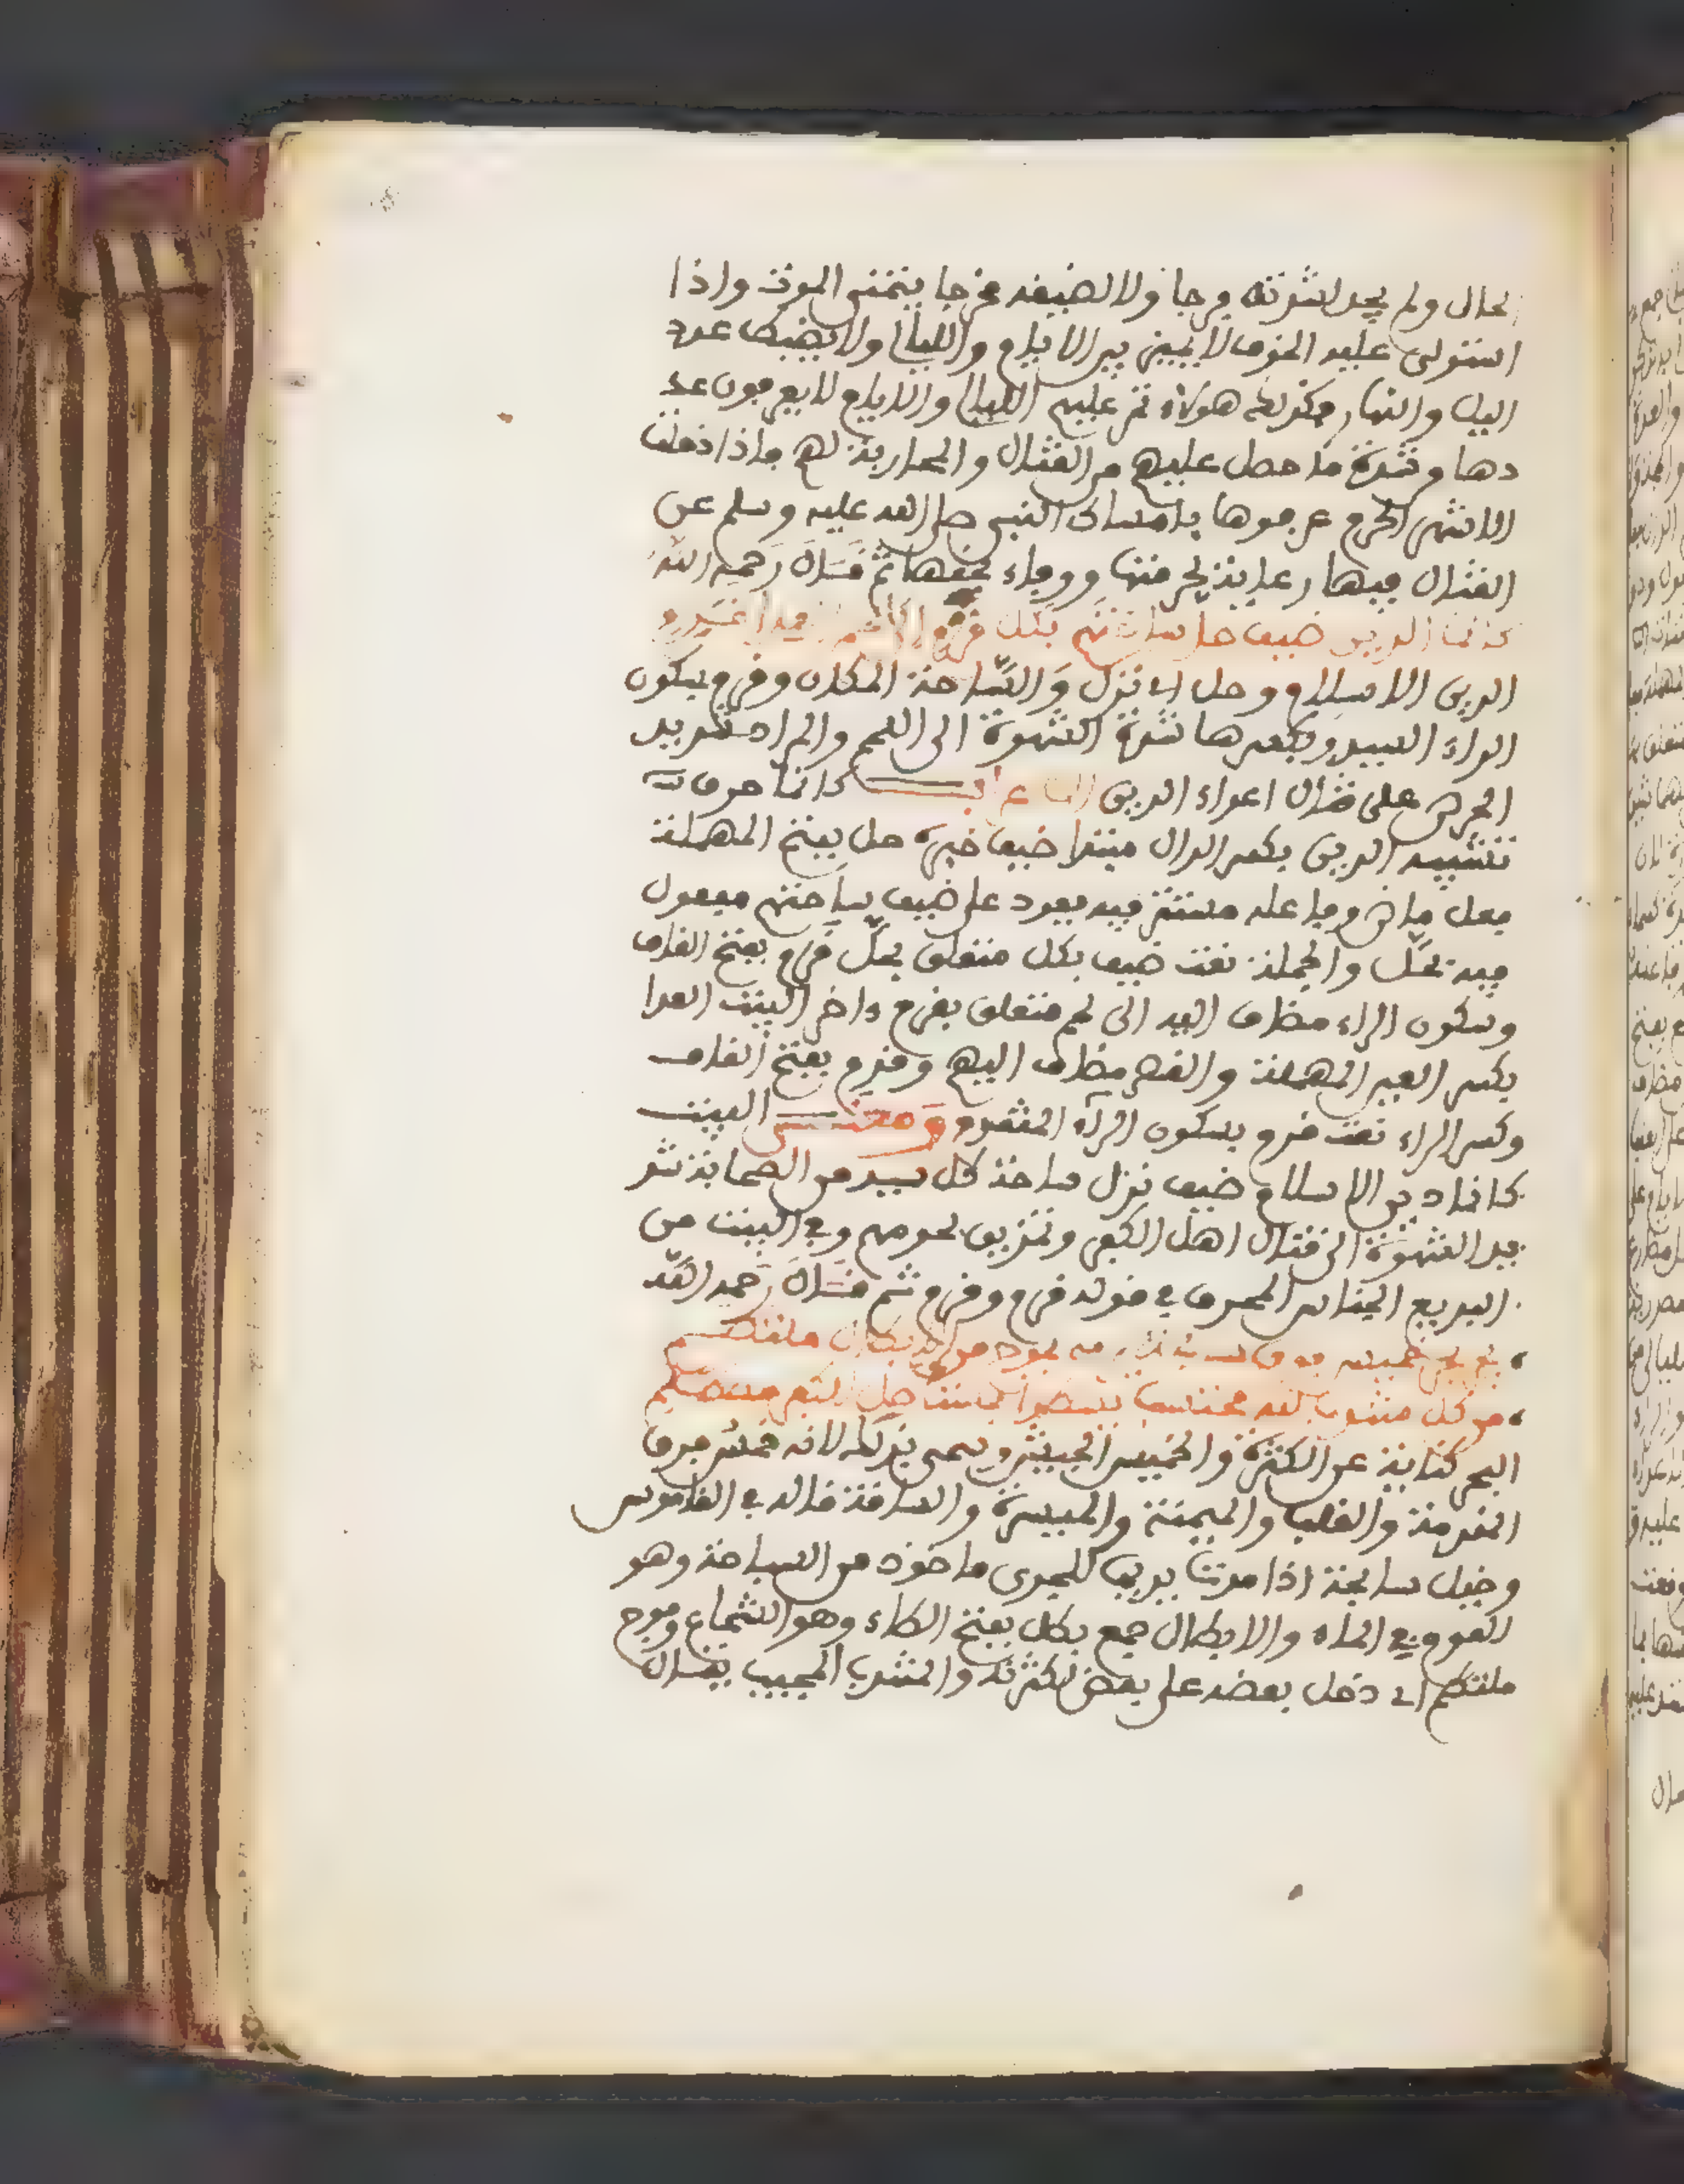 الحال ولم يجد لشدته فرجا ولا لضيقه مخرجا يتمنى الموت واذا
استولى عليه الخوف لا يميز بين الايام والليالي ولا يضبط عدد
اليل والنهار فكذلك هؤلاء تمر عليهم الليالي والايام لا يعرفون عد
دها وشدة ما حصل عليهم من القتال والمحاربة لهم فاذا دخلت
الاشهر الحرم عرفوها بامساك النبي صلى الله عليه وسلم عن
القتال فيها رعاية لحرمتها ووفاء بحقها ثم قال رحمه الله
كانما الدين ضيف حل ساحتهم بكل قرم الى لحم العدا قرم
الدين الاسلام وحل اي نزل والساحة المكان وقرم بسكون
الراء السيد وبكسرها شدة الشهوة الى اللحم والمراد شديد
الحرص على قتال اعداء الدين الاعراب كانما حرف
تشبيه الدين بكسر الدال مبتدا ضيف خبره حل بفتح المهملة
فعل ماض وفاعله مستتر فيه يعود على ضيف ساحتهم مفعول
فيه بحل والجملة نعت ضيف بكل متعلق بحل قرم بفتح القاف
وسكون الراء مضاف اليه الى لحم متعلق بقرم واخر البيت العدا
بكسر العين المهملة والقصر مضاف اليهم وقرم بفتح القاف
وكسر الراء نعت قرم بسكون الراء المتقدم ومعنى البيت
كانما دين الاسلام ضيف نزل ساحة كل سيد من الصحابة شد
يد الشهوة الى قتال اهل الكفر وتمزيق لحومهم وفي البيت من
البديع الجناس المحرف في قوله قرم وقرم ثم قال رحمه الله
يجر بحر خميس فوق سابحة يرمي بموج من الابطال ملتطم
من كل منتدب لله محتسب يسطو بمستاصل للكفر مصطلم
البحر كناية عن الكثرة والخميس الجيش وسمي بذلك لانه خمس فرق
المقدمة والقلب والميمنة والميسرة والساقة قاله في القاموس
وخيل سابحة اذا مدت يديها للجري ماخوذ من السباحة وهو
العوم في الماء والابطال جمع بطل بفتح الطاء وهو الشجاع وموج
ملتطم اي دخل بعضه على بعض لكثرته والمنتدب المجيب يقال